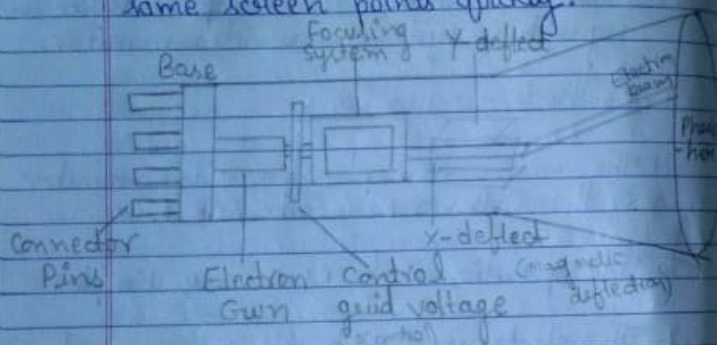 same screen points quickly.
Focusing
system
Y-deflect
Base
Electron
beam
Phos
-hor
Connector
Pins
Electron
Gun
Control
grid voltage
X-deflect
(magnetic
deflection)